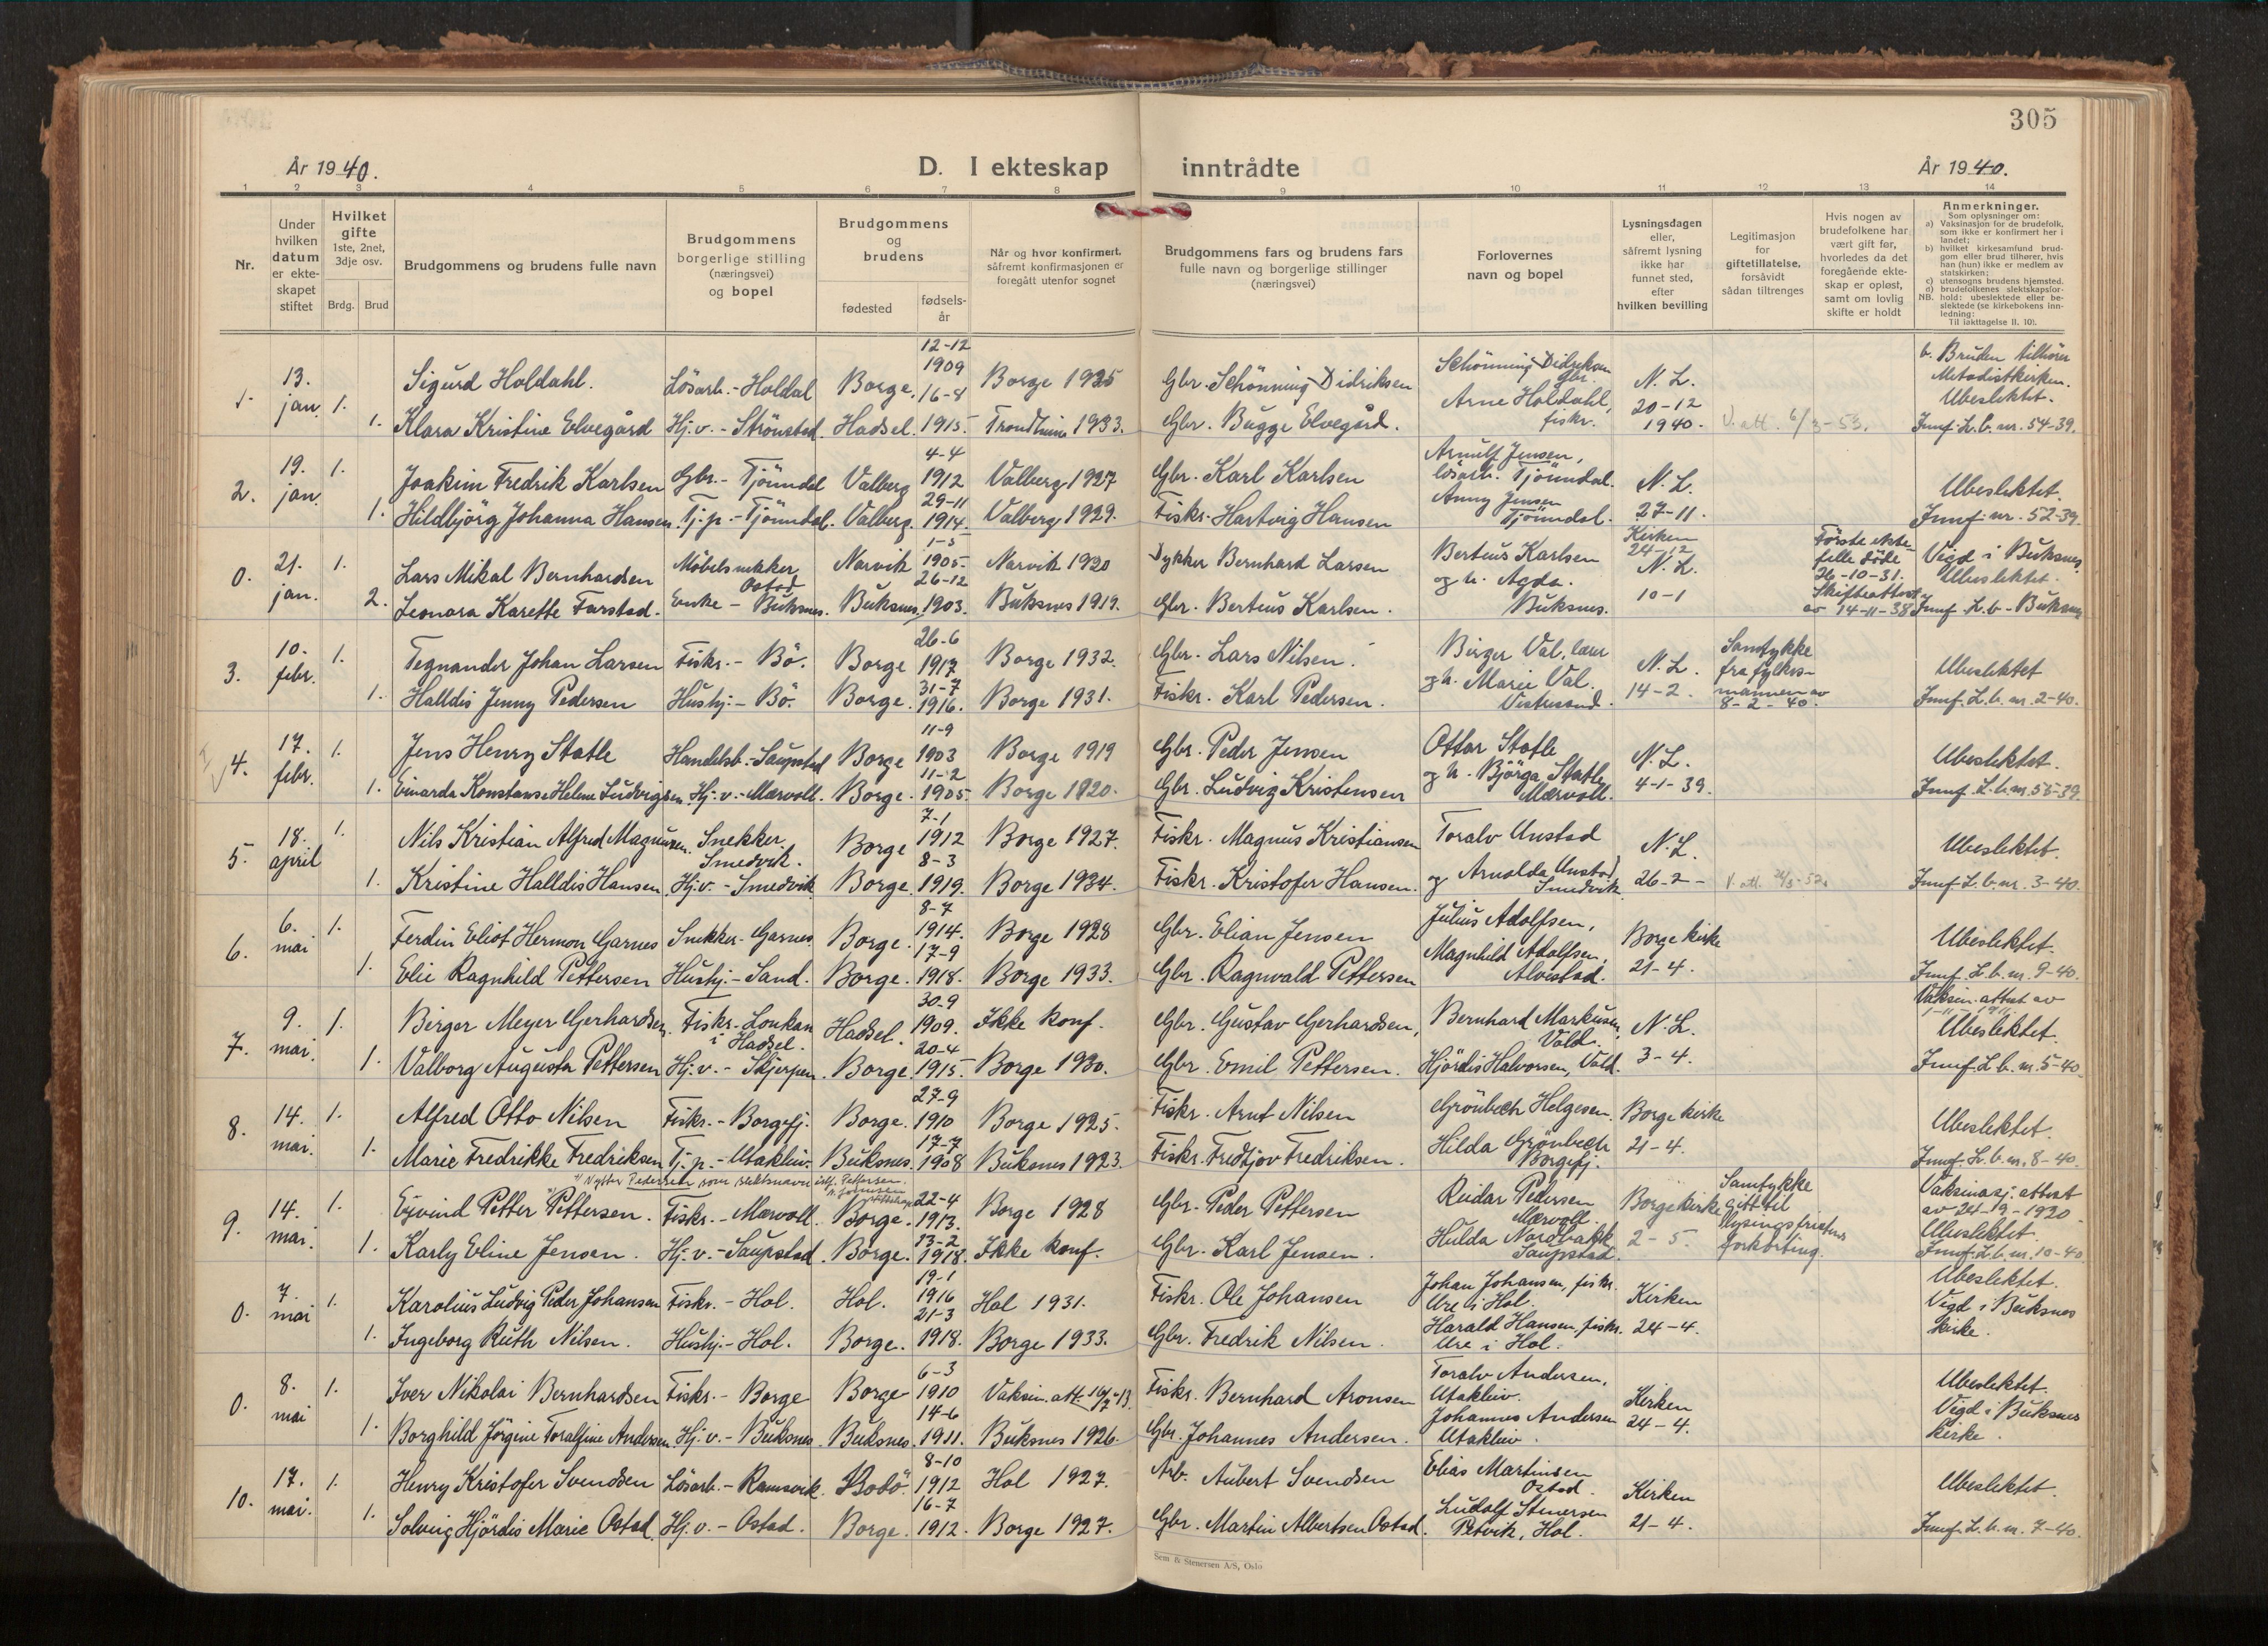 305
År 1940.
D. I ekteskap inntrådte
År 1940.
1 2 3 4 5 6 7 8 9 10 11 12 13 14
Nr.
Under
hvilken
datum
er ekte-
skapet
stiftet
Hvilket
gifte
1ste, 2net,
3dje osv.
Brdg. Brud
Brudgommens og brudens fulle navn
Brudgommens
borgerlige stilling
(næringsvei)
og bopel
Brudgommens
og
brudens
fødested
fødsels-
år
Når og hvor konfirmert.
såfremt konfirmasjonen er
foregått utenfor sognet
Brudgommens fars og brudens fars
fulle navn og borgerlige stillinger
(næringsvei)
Forlovernes
navn og bopel
Lysningsdagen
eller,
såfremt lysning
ikke har
funnet sted,
efter
hvilken bevilling
Legitimasjon
for
giftetillatelse,
forsåvidt
sådan tiltrenges
Hvis nogen av
brudefolkene har
vært gift før,
hvorledes da det
foregående ekte-
skap er opløst,
samt om lovlig
skifte er holdt
Anmerkninger.
Som oplysninger om:
a) Vaksinasjon for de brudefolk,
som ikke er konfirmert her i
landet;
b) hvilket kirkesamfund brud-
gom eller brud tilhører, hvis
han (hun) ikke er medlem av
statskirken;
c) utensogns brudens hjemsted.
d) brudefolkenes slektskapsfor-
NB. hold: ubeslektede eller be-
slektede (se kirkebokens inn-
ledning:
Til iakttagelse II. 10).
1. 13. jan. 1. Sigurd Holdahl. Lösarb. - Holdal Borge. 12-12 1909 Borge 1925 Gbr. Schönning Didriksen
1. Klara Kristine Elvegård Hj.v. - Strönstad. Hadsel. 16-8 1915. Trondheim 1933. Gbr. Bugge Elvegård.
Schönning Didriksen
Gbr.
Arne Holdahl,
fiskr.
N. L.
20-12
1940.
V. att. 6/3-53.
b. Bruden tilhörer
Metodistkirken.
Ubeslektet.
Jmnf. L.b. nr. 54-39.
2. 19. jan. 1. Joakim Fredrik Karlsen Gbr. - Tjönndal Valberg 4-4 1912 Valberg 1927 Gbr. Karl Karlsen
1. Hildbjörg Johanna Hansen Tj.p. - Tjönndal. Valberg. 29-11 1914. Valberg 1929. Fiskr. Hartvig Hansen
Arnulf Jensen,
lösarb. Tjönndal.
Anny Jensen
Tjönndal.
N. L.
27-11.
Ubeslektet.
Jmnf. nr. 52-39.
0. 21. jan. 1. Lars Mikal Bernhardsen Möbelsnekker Ostad Narvik 1-5 1905. Narvik 1920 Dykker Bernhard Larsen
2. Leonara Karette Farstad. Enke - Buksnes. Buksnes, 26-12 1903. Buksnes 1919. Gbr. Berteus Karlsen.
Berteus Karlsen
og h. Agda.
Buksnes.
Kirken
24-12
N. L.
10-1
Förste ekte-
felle döde
26-10-31.
Skifteattest
av 14-11-38
Vigd i Buksnes.
Ubeslektet.
Jmnf. L.b. - Buksnes
3. 10. febr. 1. Tegnander Johan Larsen Fiskr. - Bö. Borge 26-6 1917 Borge 1932. Gbr. Lars Nilsen.
1. Halldis Jenny Pedersen Hushj. - Bö. Borge. 31-7 1916. Borge 1931. Fiskr. Karl Pedersen.
Birger Val, lærer
og h. Marie Val.
Vestresand.
N. L.
14-2.
Samtykke
fra fylkes-
mannen av
8-2-40.
Ubeslektet
Jmnf. L.b. nr. 2-40.
4. 17. febr. 1. Jens Henry Statle Handelsb. - Saupstad Borge 11-9 1903 Borge 1919 Gbr. Peder Jensen
1. Einarda Konstanse Helene Ludvigsen. Hj.v. - Mærvoll. Borge. 11-2 1905. Borge 1920. Gbr. Ludvig Kristensen
Ottar Statle
og h. Björga Statle
Mærvoll.
N. L.
4-1-39.
Ubeslektet.
Jmnf. L.b. nr. 55-39.
5. 18. april 1. Nils Kristian Alfred Magnussen. Snekker. Smedvik. Borge 7-1 1912 Borge 1927. Fiskr. Magnus Kristiansen
1. Kristine Halldis Hansen Hj.v. - Smedvik. Borge. 8-3 1919. Borge 1934. Fiskr. Kristofer Hansen.
Toralv Unstad
og Arnolda Unstad,
Smedvik
N. L.
26-2-
Ubeslektet.
Jmnf. L.b. nr. 3-40.
6. 6. mai 1. Ferdin Eliot Hermon Garnes Snekker - Garnes. Borge. 8-7 1914. Borge 1928 Gbr. Elian Jensen
1. Elie Ragnhild Pettersen Hushj. - Sand. Borge. 17-9 1918. Borge 1933. Gbr. Ragnvald Pettersen
Julius Adolfsen,
Magnhild Adolfsen,
Alvestad.
Borge kirke
21-4.
Ubeslektet.
Jmnf. L.b. nr. 9-40.
7. 9. mai. 1. Birger Meyer Gerhardsen. Fiskr. Lonkan i Hadsel. Hadsel. 30-9 1909. Ikke konf. Gbr. Gustav Gerhardsen,
1. Valborg Augusta Pettersen Hj.v. - Skjerpen. Borge. 20-4 1915. Borge 1930. Gbr. Emil Pettersen.
Bernhard Markusen,
Vold.
Hjördis Halvorsen, Vold.
N. L.
3-4.
Vaksin. attest av
Ubeslektet.
Jmnf. L.b. nr. 5-40.
8. 14. mai. 1. Alfred Otto Nilsen Fiskr. - Borgefj. Borge. 27-9 1910 Borge 1925. Fiskr. Arnt Nilsen
1. Marie Fredrikke Fredriksen Tj.p. - Utakleiv. Buksnes. 17-7 1908 Buksnes 1923. Fiskr. Fredtjov Fredriksen.
Grönbech Helgesen.
Hilda Grönbech
Borgefj.
Borge kirke
21-4.
Ubeslektet.
Jmnf. L.b. nr. 8-40.
Nytter Pedersen som slektsnavn istf. Pettersen.
9. 14. mai. 1. Eyvind Petter Pettersen. Fiskr. - Mærvoll. Borge. 22-4 1913. Borge 1928 Gbr. Peder Pettersen
1. Karly Eline Jensen. Hj.v. - Saupstad. Borge. 13-2 1918. Ikke konf. Gbr. Karl Jensen.
Reidar Pedersen
Mærvoll.
Hulda Nordbakk
Saupstad.
Borge kirke
2-5.
Samtykke
gitt til
lysingsfristens
forkorting.
Vaksinasj. attest
av 24-9-1920.
Ubeslektet.
Jmnf. L.b. nr. 10-40
0. 7. mai 1. Karolius Ludvig Peder Johansen Fiskr. - Hol. Hol. 19-1 1916 Hol 1931. Fiskr. Ole Johansen
1. Ingeborg Ruth Nilsen. Hushj. - Hol. Borge. 21-3 1918. Borge 1933. Gbr. Fredrik Nilsen.
Johan Johansen, fiskr.
Ure i Hol.
Harald Hansen, fiskr.
Ure i Hol.
Kirken
24-4.
Ubeslektet.
Vigd i Buksnes
kirke.
0. 8. mai 1. Iver Nikolai Bernhardsen Fiskr. - Borge Borge 6-3 1910 Vaksin. att. 16/7-13. Fiskr. Bernhard Aronsen
1. Borghild Jörgine Toralfine Andersen Hj.v. - Buksnes. Buksnes. 14-6 1911. Buksnes 1926. Gbr. Johannes Andersen.
Toralv Andersen,
Utakleiv.
Johannes Andersen
Utakleiv.
Kirken
24-4.
Ubeslektet.
Vigd i Buksnes
kirke.
10. 17. mai. 1. Henry Kristofer Svendsen Lösarb. - Ramsvik. Bodö. 8-10 1912 Hol 1927. Arb. Aubert Svendsen
1. Solveig Hjördis Marie Ostad. Hj.v. - Ostad. Borge. 16-7 1912. Borge 1927. Gbr. Martin Albertsen Ostad.
Elias Martinsen
Ostad.
Ludolf Stenersen
Petvik, Hol.
Kirken
21-4.
Ubeslektet.
Jmnf. L.b. nr. 7-40.
Sem & Stenersen A/S, Oslo